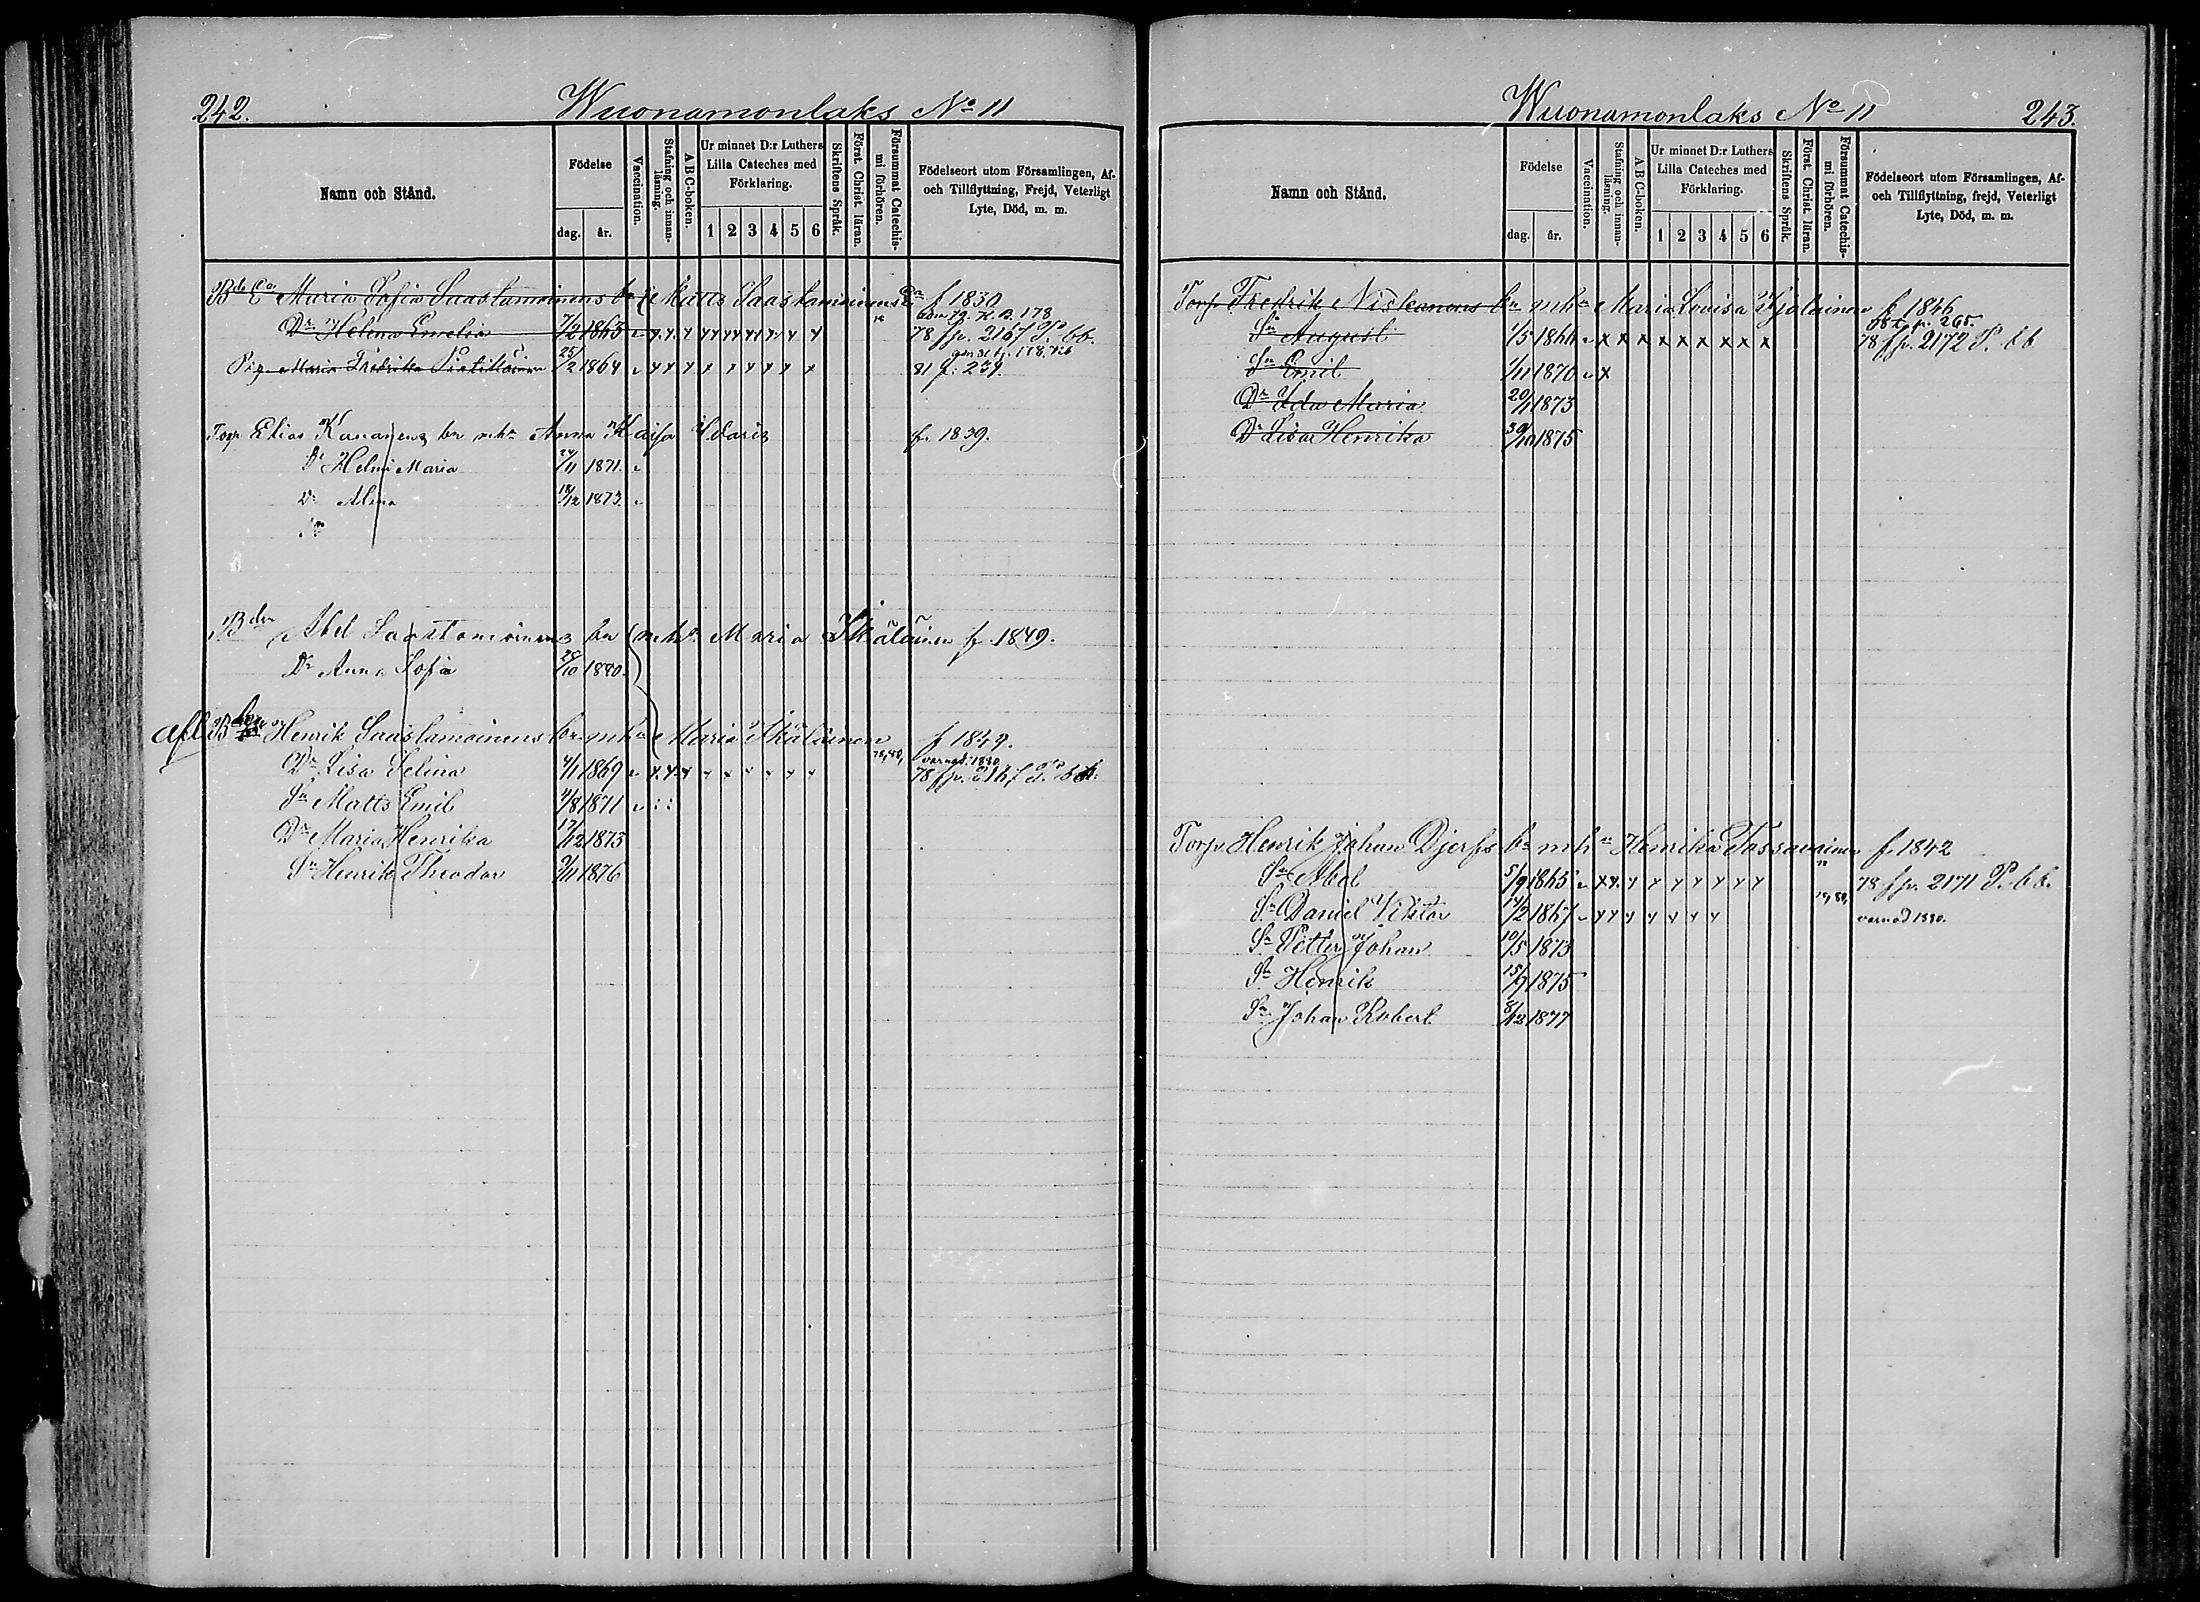 242.
Wuonamonlaks No 11
Namn och Stånd.
Födelse
dag. år.
Vaccination.
Stafning och innanläsning.
A B C-boken.
Ur minnet D:r Luthers Lilla Cateches med Förklaring.
1 2 3 4 5 6
Skriftens Språk.
Först. Christ. läran.
Försummat Catechismi förhören.
Födelseort utom Församlingen, Af- och Tillflyttning, Frejd, Veterligt Lyte, Död, m. m.
Maria Sofia Saastamoinens bn Matts Saastamoinens f 1830
Dr Helena Emelia 7/2 1863 78 fp. 2167 P. bb.
Pig. Maria Fredrika 25/2 1864 81 p. 239.
Torp Elias Kananens bn mhu Anna Kaisa f. 1839.
Dr Helmi Maria 24/11 1871.
Dr Alma 18/12 1873.
Sn
Bden Abel Saastamoinens bn mhu Maria Ikäläinen f. 1849.
Dr Anna Sofia 28/10 1880.
Henrik Saastamoinens bn mhu Maria Ikäläinen f 1849.
Dr Lisa Selina 4/11 1869 79,80, varnad 1880. 78 fp. 2167 P. bb.
Sn Matts Emil 4/8 1871
Dr Maria Henrika 17/12 1873
Sn Henrik Theodor 9/11 1876
Wuonamonlaks No 11
243.
Namn och Stånd.
Födelse
dag. år.
Vaccination.
Stafning och innanläsning.
A B C-boken.
Ur minnet D:r Luthers Lilla Cateches med Förklaring.
1 2 3 4 5 6
Skriftens Språk.
Först. Christ. läran.
Försummat Catechismi förhören.
Födelseort utom Församlingen, Af- och Tillflyttning, frejd, Veterligt Lyte, Död, m. m.
Torp Fredrik Niskanens bn mhu Maria Lovisa f 1846
Sn August 1/5 1866 78 fp. 2172 P. bb
Sn Emil 1/11 1870
Dr Ida Maria 20/11 1873
Dr Lisa Henrika 30/10 1875
Torp Henrik Johan Djerfs bn mhu Henrika Tossavainen f 1842
Sn Abel 5/9 1865 78 fp. 2171 P. bb.
Sn Daniel Viktor 14/2 1867 79,80, varnad 1880.
Sn Petter Johan 10/5 1873
Sn Henrik 15/9 1875
Sn Johan Robert 8/12 1877